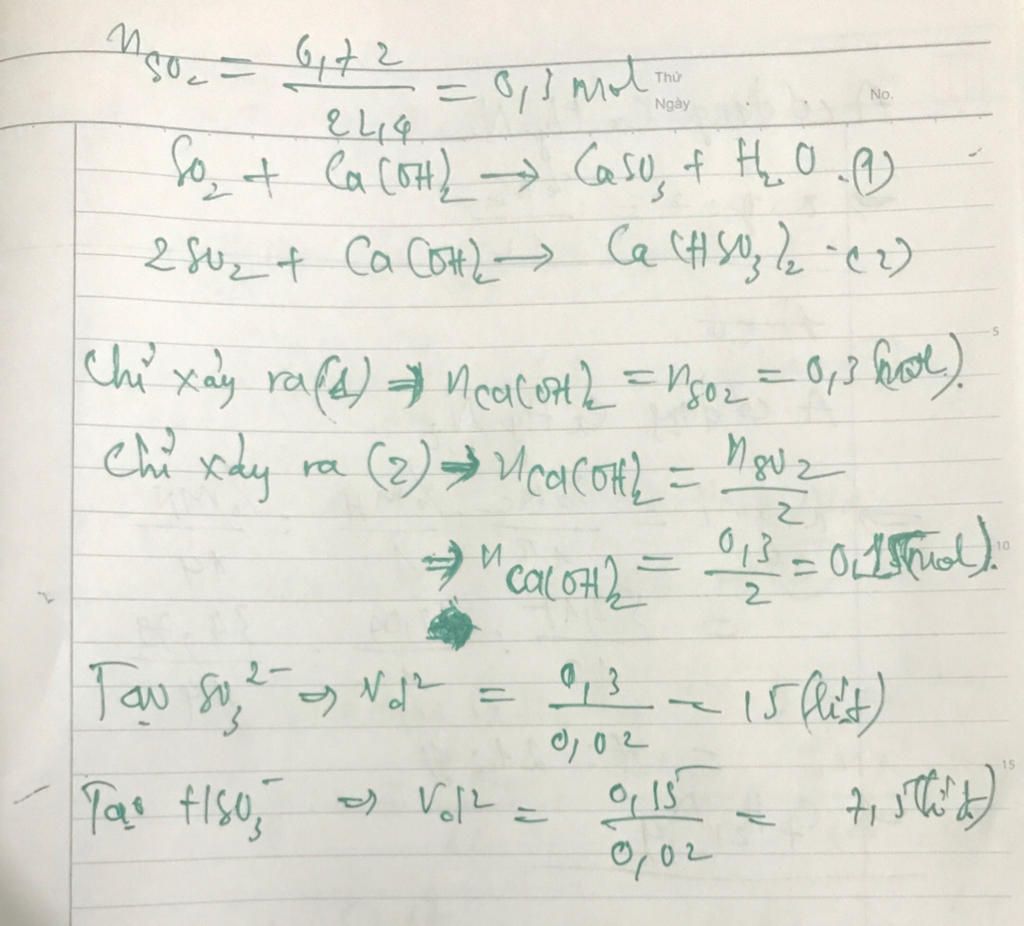 n_SO₂ = 6,72 / 22,4 = 0,3 mol
Thứ
Ngày
No.
SO₂ + Ca(OH)₂ → CaSO₃ + H₂O .(1)
2SO₂ + Ca(OH)₂ → Ca(HSO₃)₂ .(2)
5
Chỉ xảy ra (1) ⇒ n_Ca(OH)₂ = n_SO₂ = 0,3 (mol).
Chỉ xảy ra (2) ⇒ n_Ca(OH)₂ = n_SO₂ / 2
⇒ n_Ca(OH)₂ = 0,3 / 2 = 0,15 (mol).
10
Tạo SO₃²⁻ ⇒ Vd² = 0,3 / 0,02 = 15 (lít)
15
Tạo HSO₃⁻ ⇒ Vd² = 0,15 / 0,02 = 7,5 (lít)